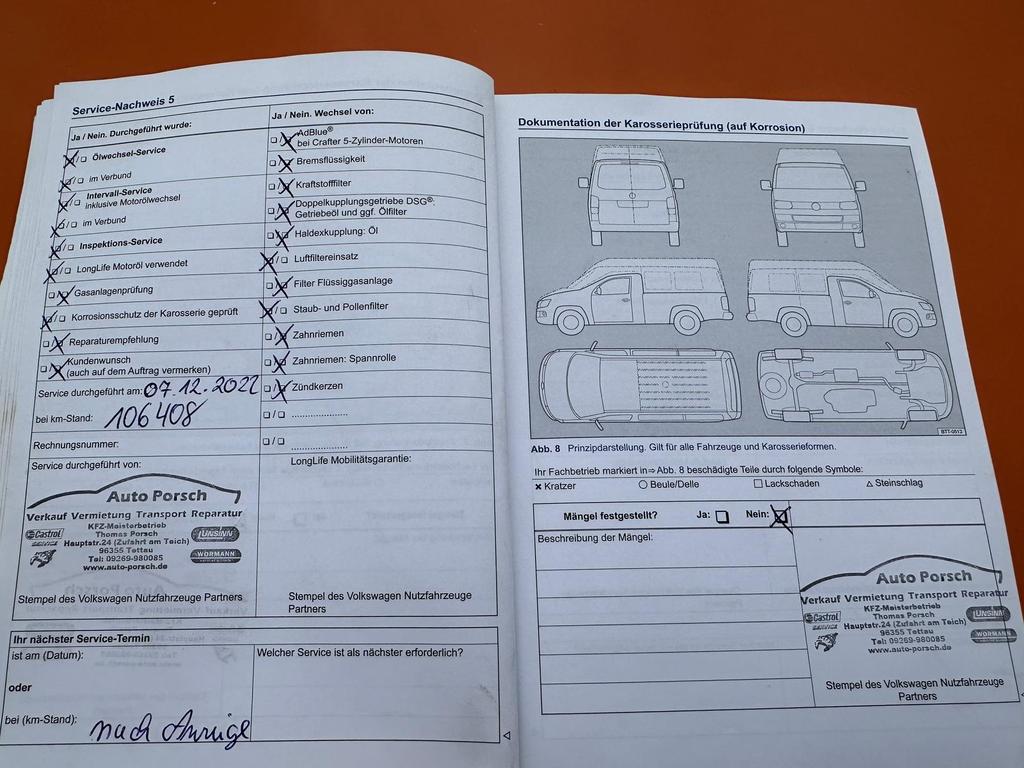 Service-Nachweis 5
Ja / Nein. Durchgeführt wurde:
Ölwechsel-Service
im Verbund
Intervall-Service
inklusive Motorölwechsel
im Verbund
Inspektions-Service
LongLife Motoröl verwendet
Gasanlagenprüfung
Korrosionsschutz der Karosserie geprüft
Reparaturempfehlung
Kundenwunsch
(auch auf dem Auftrag vermerken)
Service durchgeführt am: 07.12.2022
bei km-Stand: 106 408
Rechnungsnummer:
Service durchgeführt von:
Auto Porsch
Verkauf Vermietung Transport Reparatur
KFZ-Meisterbetrieb
Thomas Porsch
Hauptstr.24 (Zufahrt am Teich)
96355 Tettau
Tel: 09269-980085
www.auto-porsch.de
Castrol
SERVICE
UNSINN
WÖRMANN
Stempel des Volkswagen Nutzfahrzeuge Partners
Ja / Nein. Wechsel von:
AdBlue®
bei Crafter 5-Zylinder-Motoren
Bremsflüssigkeit
Kraftstofffilter
Doppelkupplungsgetriebe DSG®:
Getriebeöl und ggf. Ölfilter
Haldexkupplung: Öl
Luftfiltereinsatz
Filter Flüssiggasanlage
Staub- und Pollenfilter
Zahnriemen
Zahnriemen: Spannrolle
Zündkerzen
LongLife Mobilitätsgarantie:
Stempel des Volkswagen Nutzfahrzeuge
Partners
Ihr nächster Service-Termin
ist am (Datum):
oder
bei (km-Stand): nach Anzeige
Welcher Service ist als nächster erforderlich?
Dokumentation der Karosserieprüfung (auf Korrosion)
BTT-0512
Abb. 8 Prinzipdarstellung. Gilt für alle Fahrzeuge und Karosserieformen.
Ihr Fachbetrieb markiert in ⇒ Abb. 8 beschädigte Teile durch folgende Symbole:
× Kratzer ○ Beule/Delle □ Lackschaden △ Steinschlag
Mängel festgestellt? Ja: Nein:
Beschreibung der Mängel:
Auto Porsch
Verkauf Vermietung Transport Reparatur
KFZ-Meisterbetrieb
Thomas Porsch
Hauptstr.24 (Zufahrt am Teich)
96355 Tettau
Tel: 09269-980085
www.auto-porsch.de
Castrol
SERVICE
UNSINN
WÖRMANN
Stempel des Volkswagen Nutzfahrzeuge
Partners